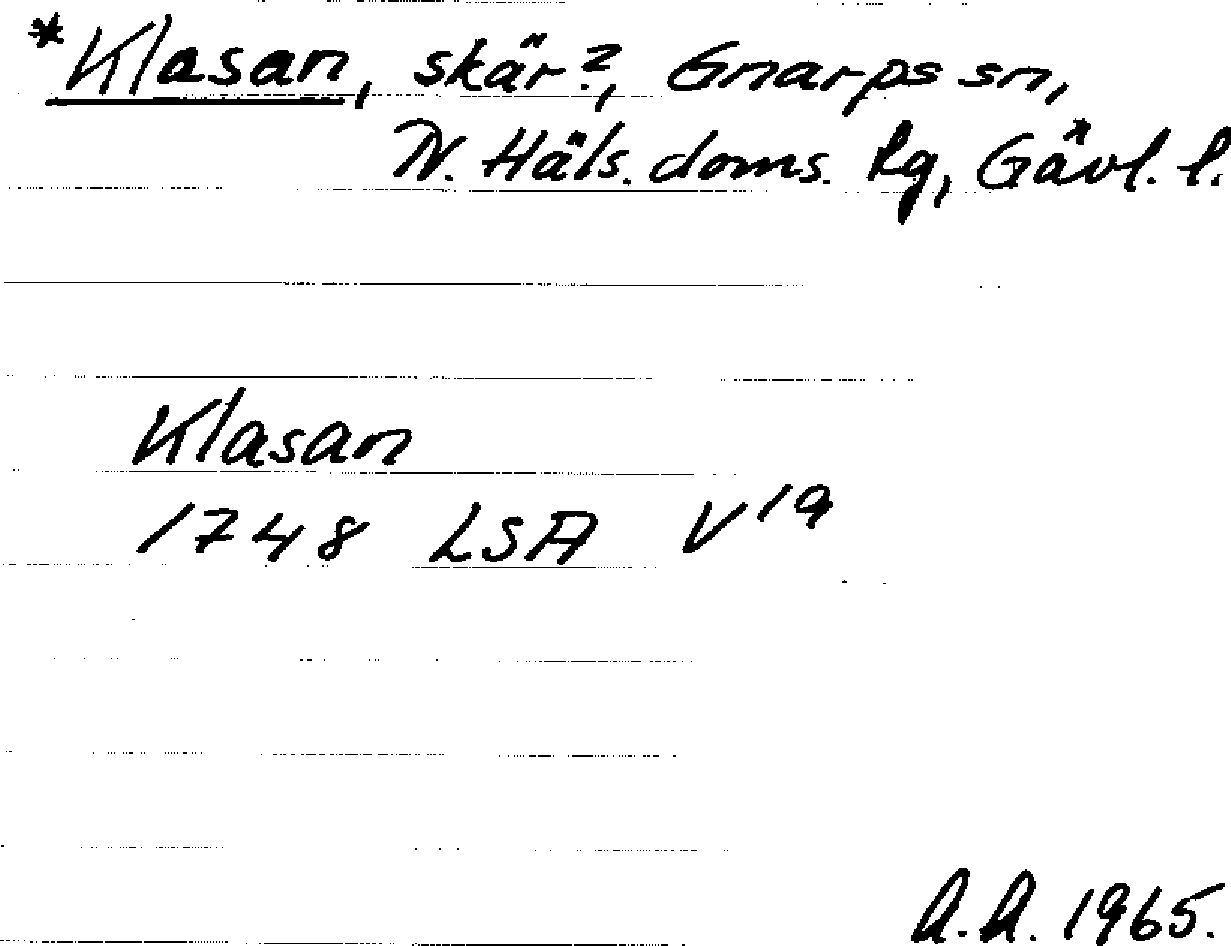 *Klasan, skär?, Gnarps sn,
N. Häls. doms. lg, Gävl. l.
Klasan
1748 LSA V19
A.A. 1965.